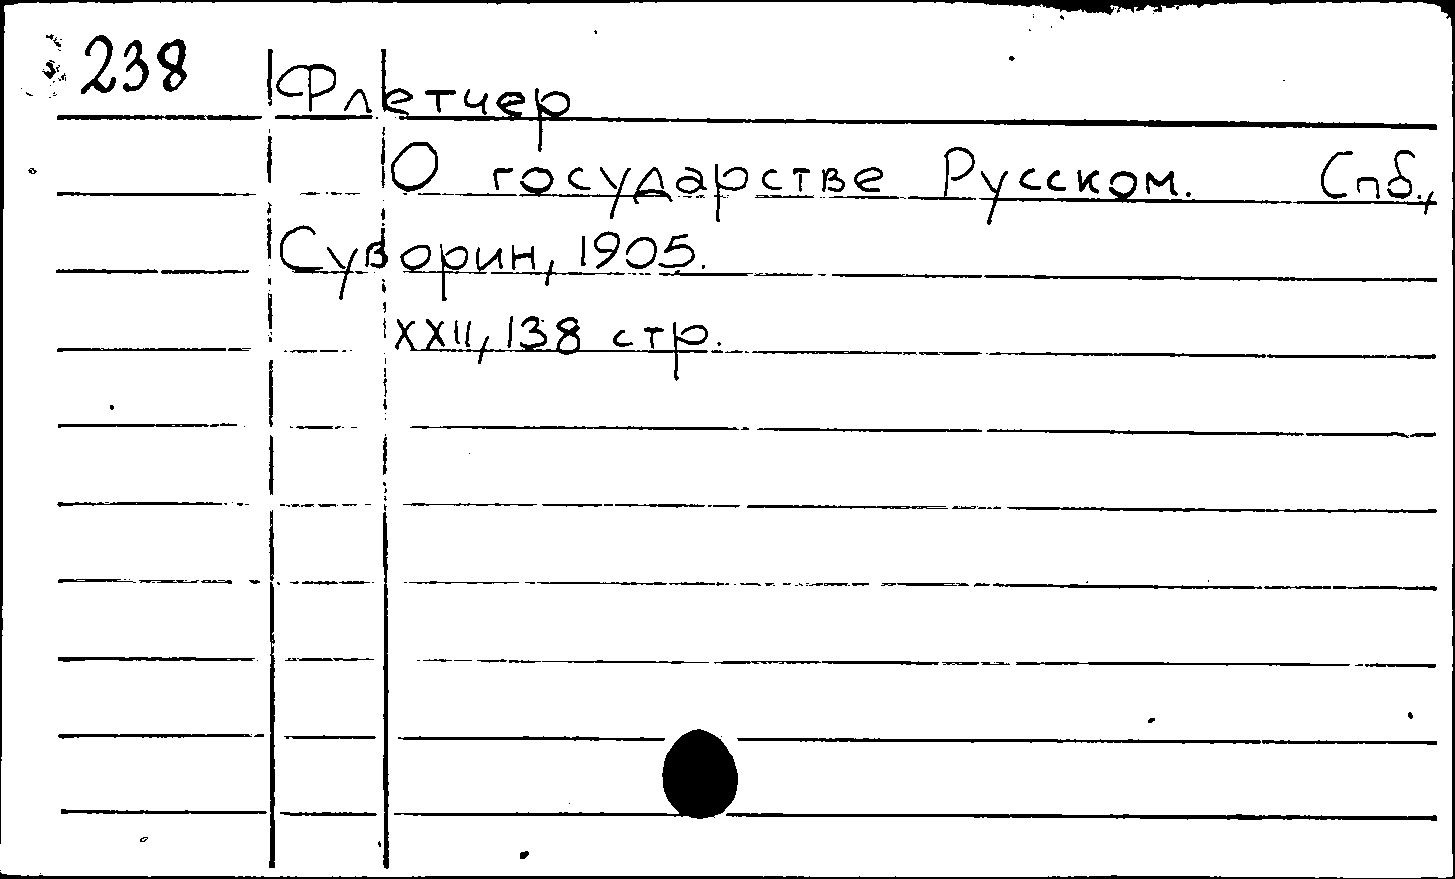 238
Флетчер
О государстве Русском. Спб.,
Суворин, 1905.
XXII, 138 стр.